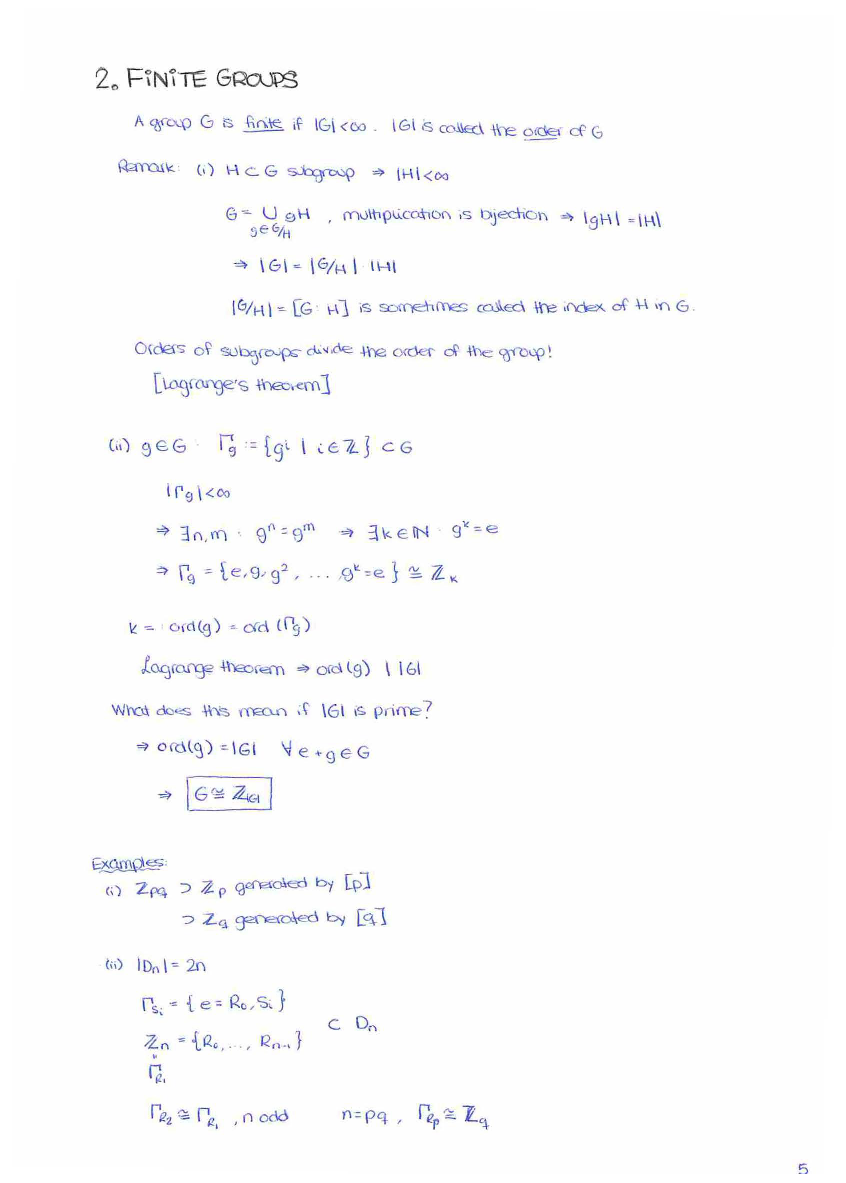 2. FINITE GROUPS
A group G is finite if |G|<∞. |G| is called the order of G
Remark: (i) H ⊂ G subgroup ⇒ |H|<∞
G = ∪ gH , multiplication is bijection ⇒ |gH| = |H|
g∈G/H
⇒ |G| = |G/H| · |H|
|G/H| = [G : H] is sometimes called the index of H in G.
Orders of subgroups divide the order of the group!
[Lagrange's theorem]
(ii) g∈G : Γg := {gⁱ | i∈ℤ} ⊂ G
|Γg|<∞
⇒ ∃n,m : gⁿ = gᵐ ⇒ ∃k∈ℕ : gᵏ = e
⇒ Γg = {e, g, g², ... gᵏ = e} ≅ ℤₖ
k =: ord(g) = ord(Γg)
Lagrange theorem ⇒ ord(g) | |G|
What does this mean if |G| is prime?
⇒ ord(g) = |G| ∀ e ≠ g ∈ G
⇒ G ≅ ℤ|G|
Examples:
(i) ℤpq ⊃ ℤp generated by [p]
⊃ ℤq generated by [q]
(ii) |Dn| = 2n
ΓSi = {e = R₀, Si}
⊂ Dn
ℤn = {R₀, ..., Rn-1}
"
ΓR₁
ΓR₂ ≅ ΓR₁ , n odd n = pq , ΓRp ≅ ℤq
5